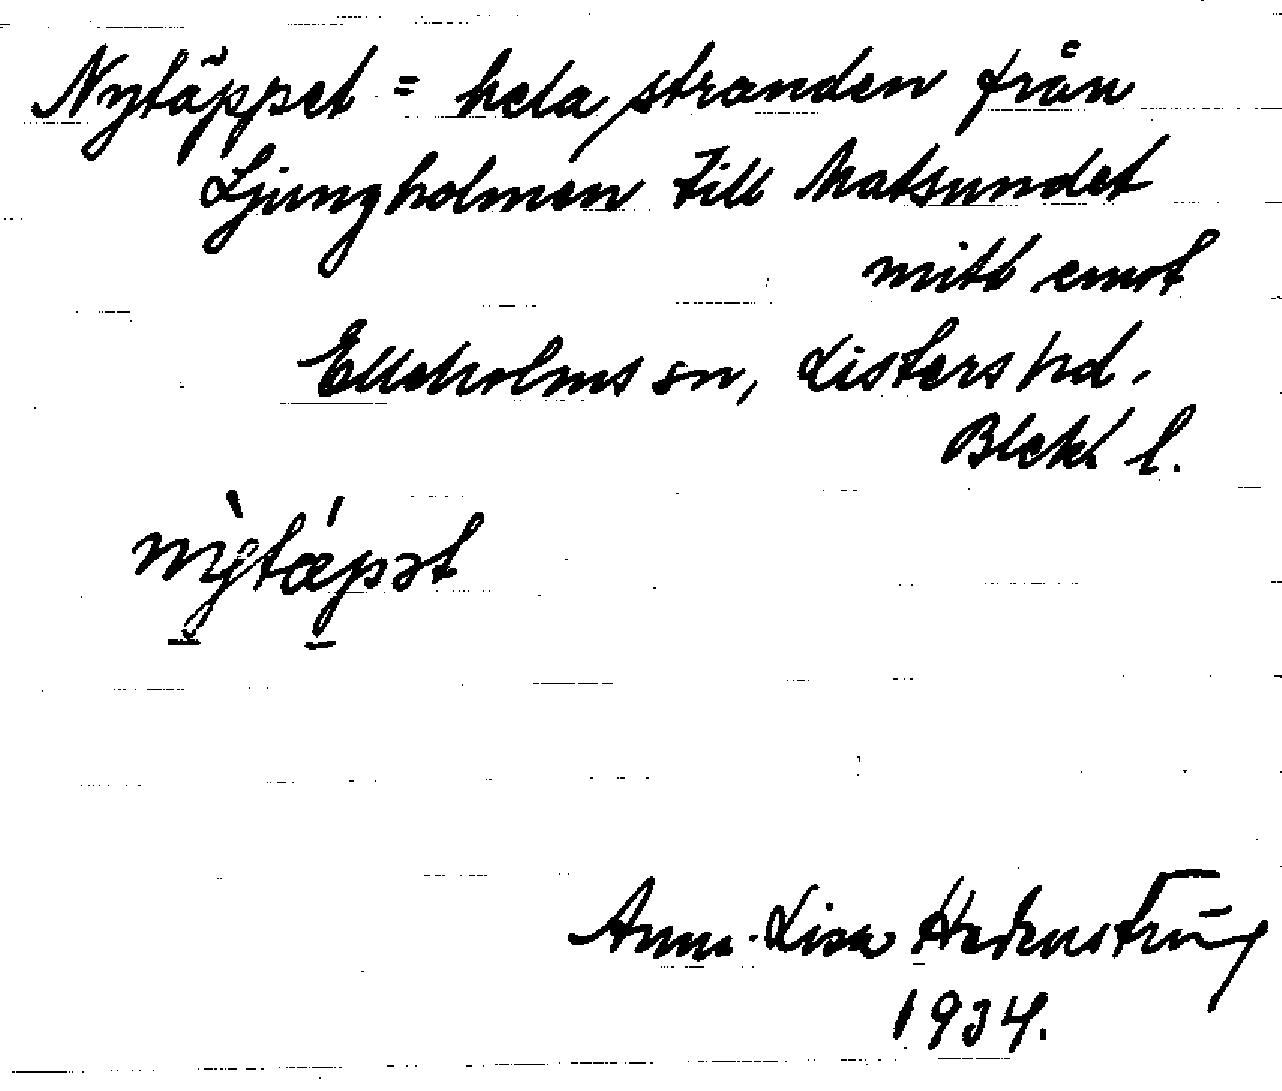 Nytäppet = hela stranden från
Ljungholmen till Matsundet
mitt emot
Elleholms sn, Listers hd.
Blek. l.
nỳtǽpət
Anna-Lisa Hedenström
1934.